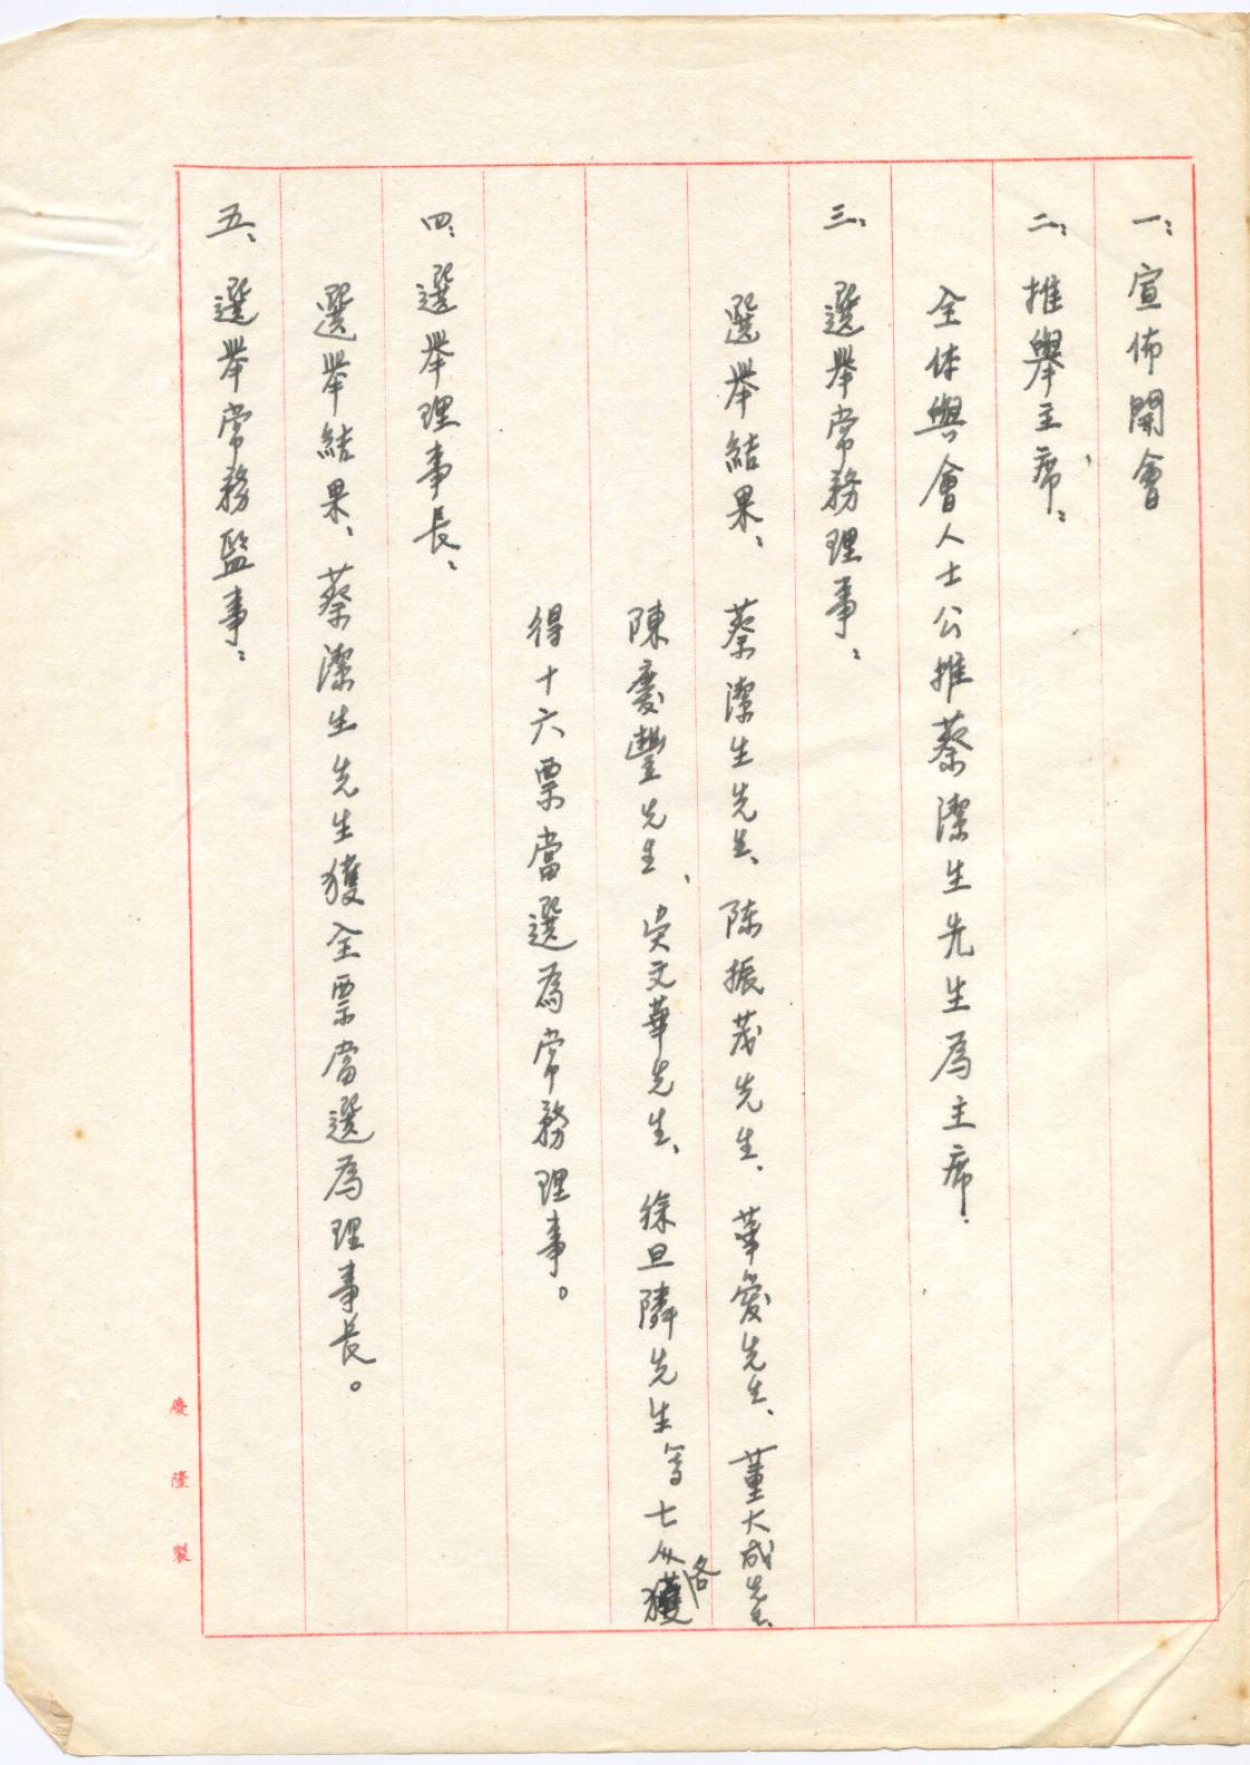 一、宣佈開會
二、推舉主席：
全体與會人士公推蔡潔生先生為主席.
三、選举常務理事：
選举結果、蔡潔生先生、陈振茂先生、華愛先生、董大成先生、
陳慶豐先生、吴文華先生、徐旦隣先生等七人各獲
得十六票當選為常務理事。
四、選举理事長：
選举結果、蔡潔生先生獲全票當選為理事長。
五、選举常務監事：
慶隆製